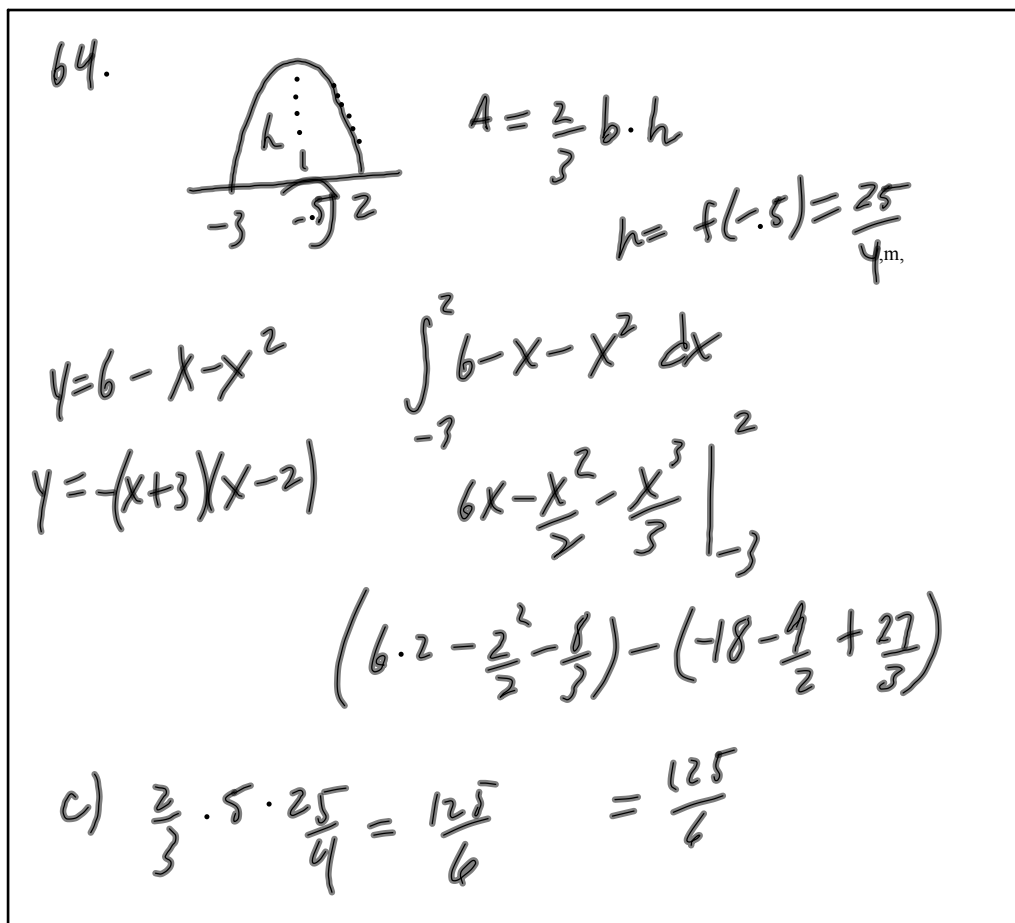 64.
h
-3 -.5 2
A = 2/3 b·h
h = f(-.5) = 25/4 ,m,
y=6 - x - x²
∫_{-3}^{2} 6 - x - x² dx
y = -(x+3)(x-2)
6x - x²/2 - x³/3 |_{-3}^{2}
(6·2 - 2²/2 - 8/3) - (-18 - 9/2 + 27/3)
c) 2/3 · 5 · 25/4 = 125/6
= 125/6